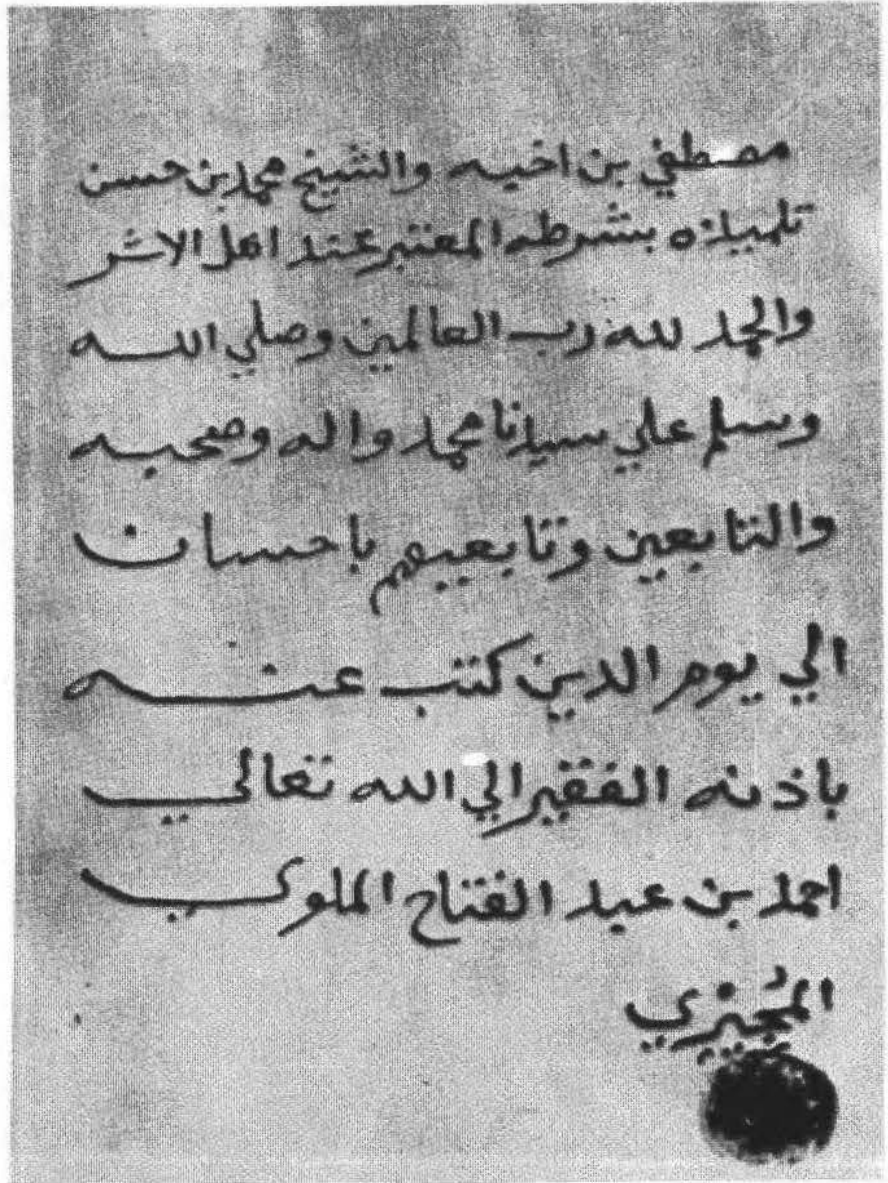 مصطفي بن اخيه والشيخ محمد بن حسن
تلميذه بشرطه المعتبر عند اهل الاثر
والحمد لله رب العالمين وصلي الله
وسلم علي سيدنا محمد واله وصحبه
والتابعين وتابعيهم باحسان
الي يوم الدين كتب عنه
باذنه الفقير الي الله تعالي
احمد بن عبد الفتاح الملوي
المجيري